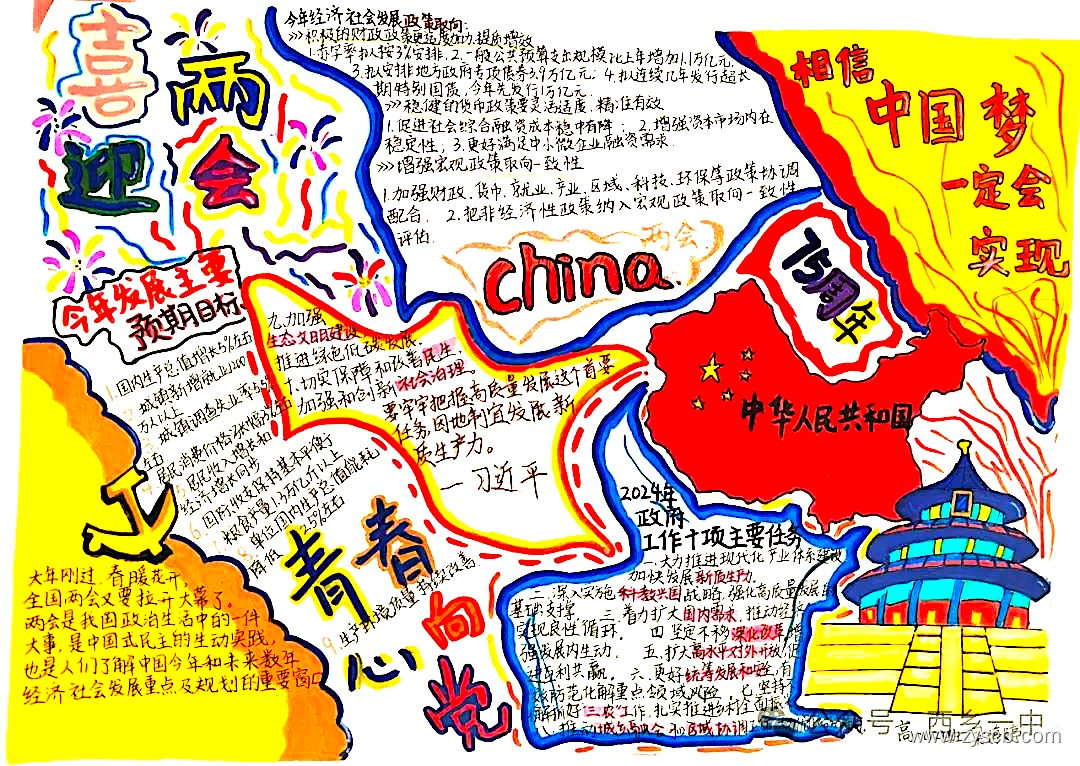 喜迎两会
今年经济社会发展政策取向:
>>>积极的财政政策要适度加力、提质增效
1.赤字率拟按3%安排. 2.一般公共预算支出规模比上年增加1.1万亿元.
3.拟安排地方政府专项债券3.9万亿元; 4.拟连续几年发行超长
期特别国债,今年先发行1万亿元.
>>>稳健的货币政策要灵活适度、精准有效
1.促进社会综合融资成本稳中有降; 2.增强资本市场内在
稳定性; 3.更好满足中小微企业融资需求.
>>>增强宏观政策取向一致性
1.加强财政、货币、就业、产业、区域、科技、环保等政策协调
配合. 2.把非经济性政策纳入宏观政策取向一致性
评估.
两会
china
相信
中国梦
一定会
实现
75周年
中华人民共和国
今年发展主要
预期目标
1.国内生产总值增长5%左右
2.城镇新增就业1200
万人以上
3.城镇调查失业率5.5%
左右
4.居民消费价格涨幅3%左右
5.居民收入增长和
经济增长同步
6.国际收支保持基本平衡
7.粮食产量1.3万亿斤以上
8.单位国内生产总值能耗
降低2.5%左右
9.生态环境质量持续改善
九.加强
生态文明建设
推进绿色低碳发展.
十.切实保障和改善民生、
加强和创新社会治理.
要牢牢把握高质量发展这个首要
任务,因地制宜发展新
质生产力。
—习近平
大年刚过,春暖花开,
全国两会又要拉开大幕了。
两会是我国政治生活中的一件
大事,是中国式民主的生动实践,
也是人们了解中国今年和未来数年
经济社会发展重点及规划的重要窗口
青春
心向
党
2024年
政府
工作十项主要任务
一.大力推进现代化产业体系建设
加快发展新质生产力.
二.深入实施科教兴国战略,强化高质量发展的
基础支撑. 三.着力扩大国内需求,推动经济
实现良性循环. 四.坚定不移深化改革,增
强发展内生动力. 五.扩大高水平对外开放,促
进互利共赢. 六.更好统筹发展和安全,有
效防范化解重点领域风险. 七.坚持不
懈抓好"三农"工作,扎实推进乡村全面振
八.推动城乡融合和区域协调
号 西乡一中
www.zyscb.com